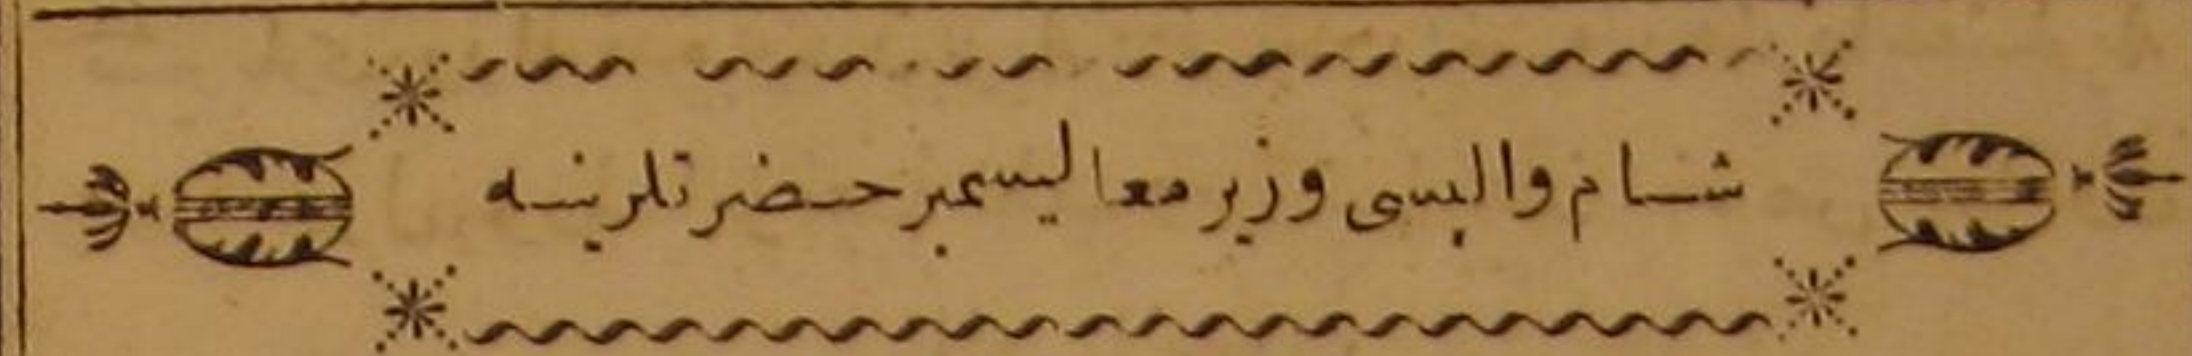 شام واليسى وزير معاليسمير حضرتلرينه